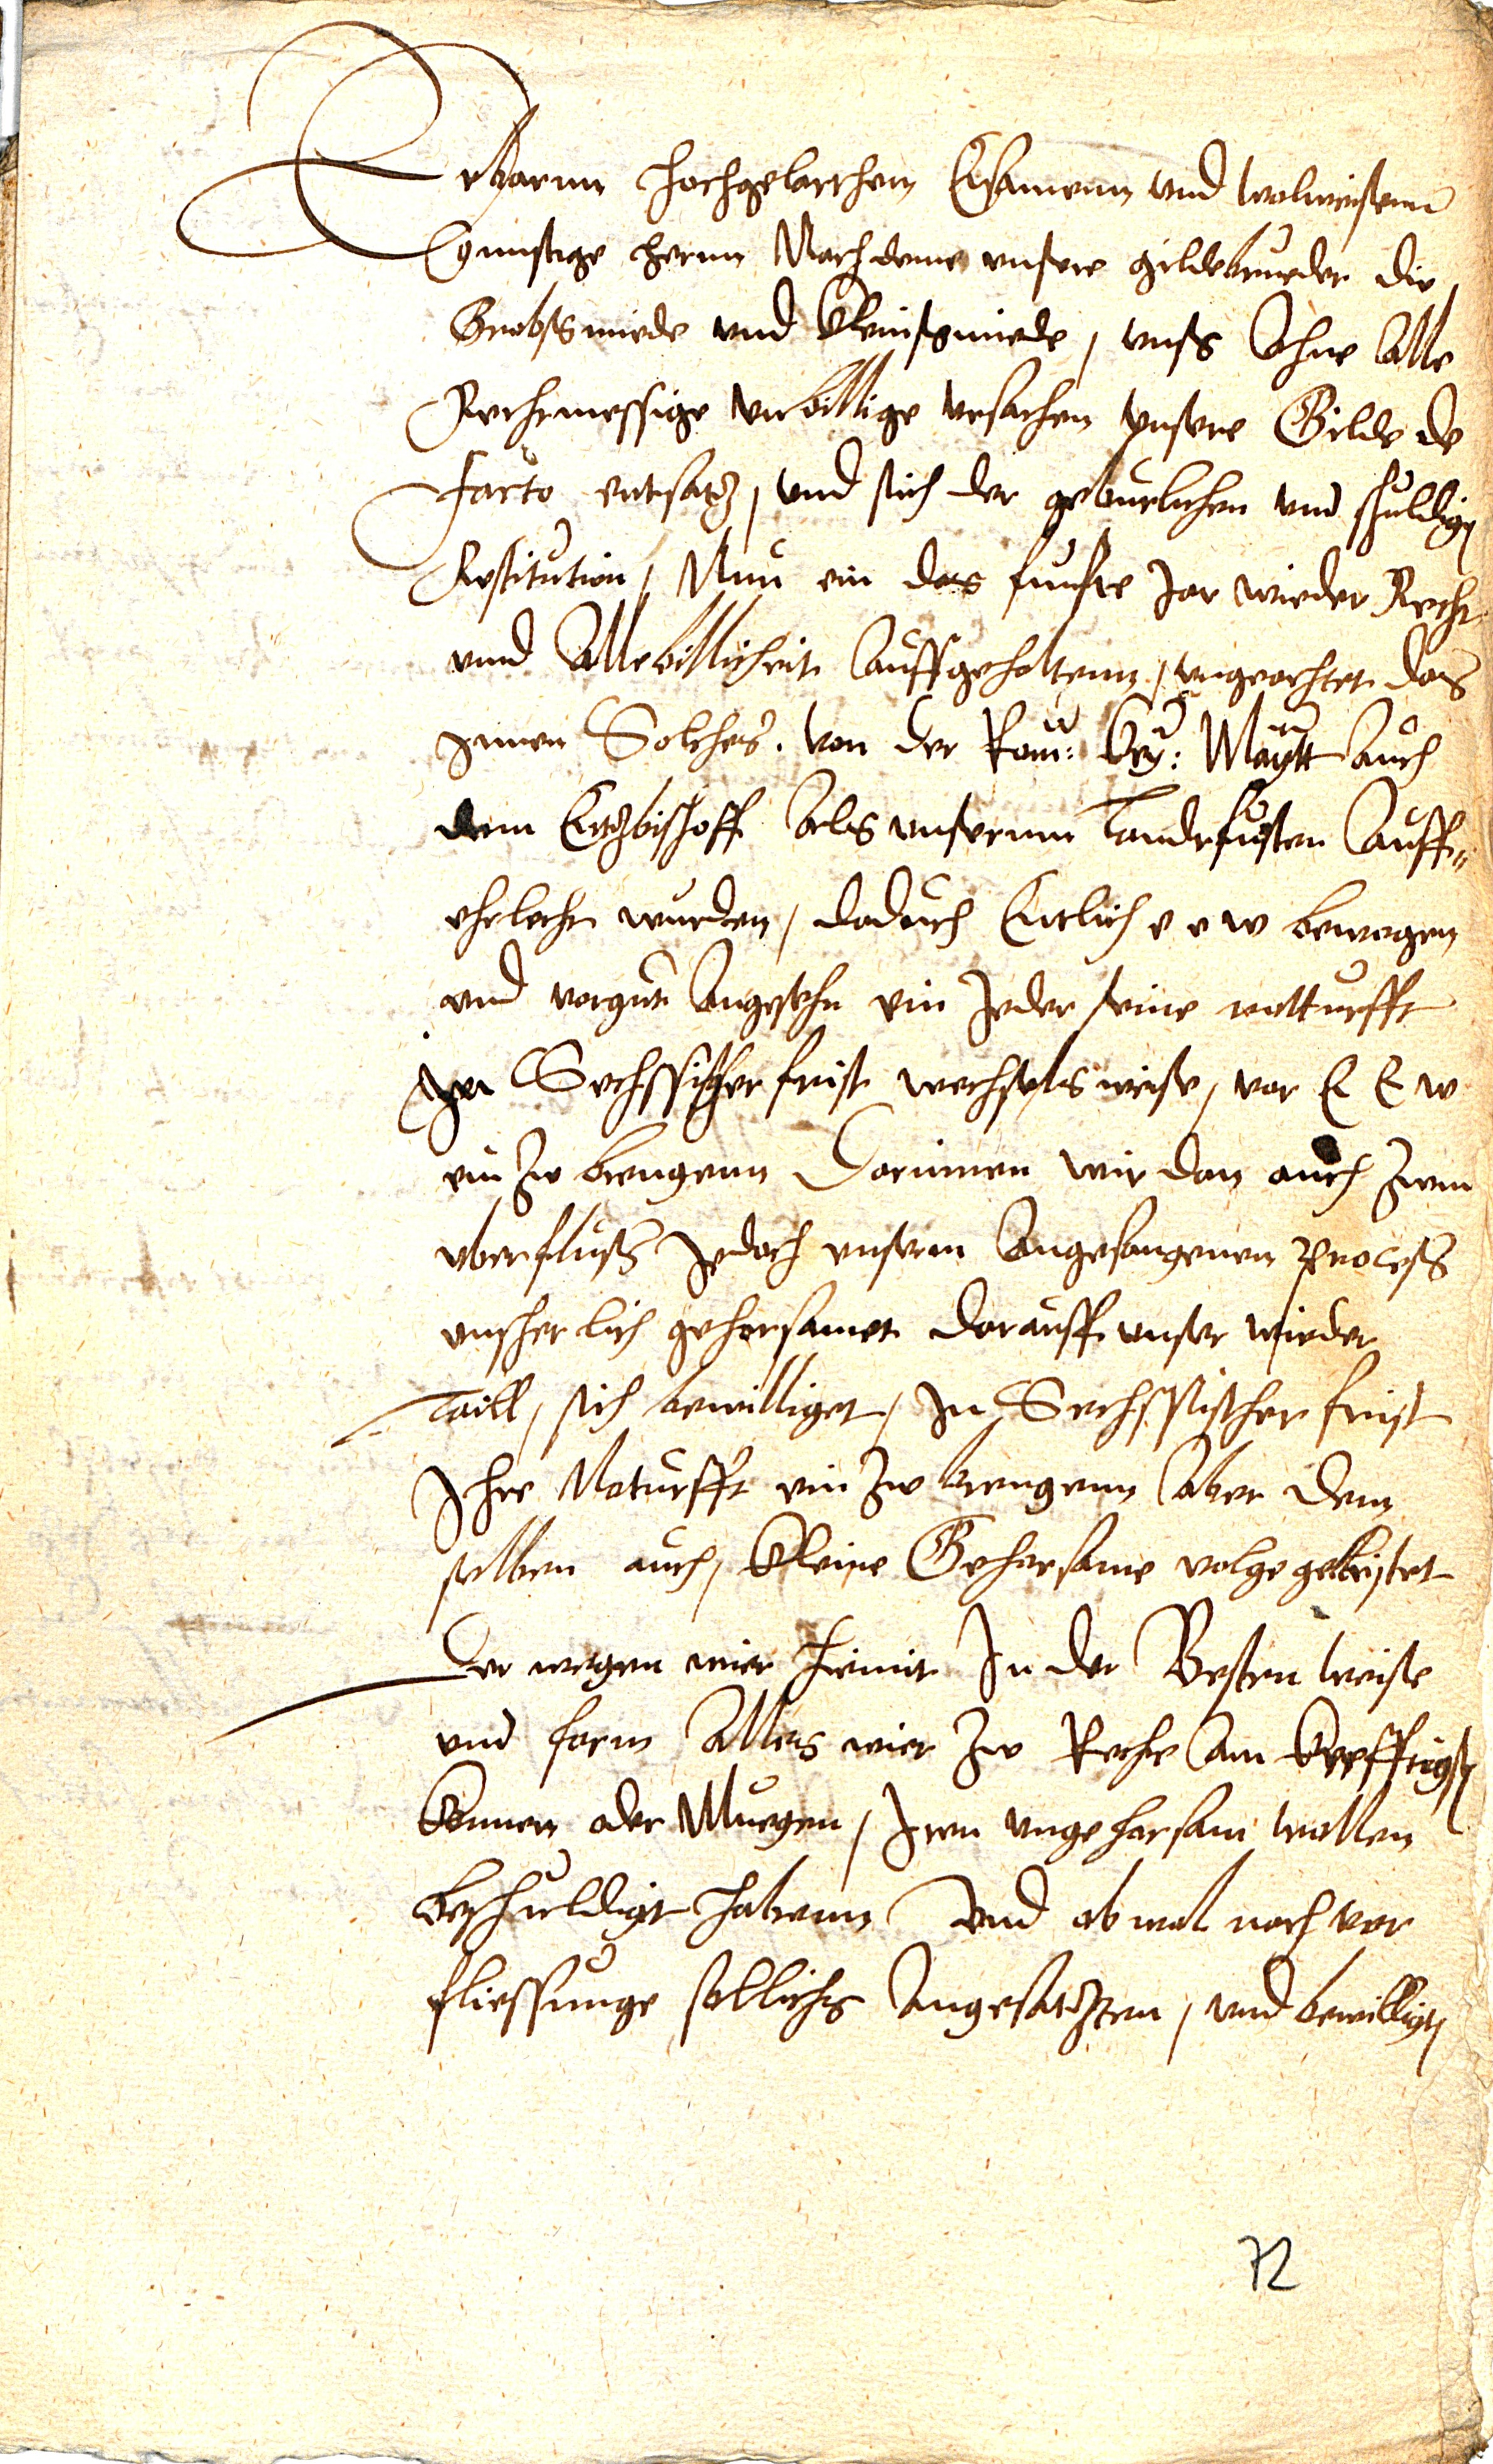 Erbarnn hochgelarthenn Ersamenn vnd wolweisenn
Gunstige hernn Nach deme vnsere gildebrueder die
Grobsmiede vnd Kleinsmiede, vnss Ahne Alle
Rechtmessige vnbillige vrsachen vnsere Gilde de
facto entsatz, vnd sich der geburlichen vnd schuldig
Restitution, Nun ein das funfte Jar wieder Recht
vnnd Alle billicheit Auffgehaltenn, vngeachtet das
Jnnen Solches von der Rom: Key: Maytt Auch
dem Ertzbischoff Als vnsernn Landtfursten Auff
erlecht wurden, daduch Entlich e e w bewogen
vnd vorgut Angesehn ein Jeder seine nottturfft
Jn Sechssischer frist wechsels weise, vor E E w
ein zw brengenn Darinnen wir dan auch zum
vberfluss Jedoch vnserm Angefangenen process
vnscherlich gehorsamet darauff vnser wieder
taill, sich bewilliget, Jn Sechssischer frist
Jhre Noturfft ein zw brengenn Aber dem
selben auch, Kleine Gehorsame volge geleistet
Der wegen wier hiemit Jn der Besten weise
vnd form Alles wier zw Recht Am Krefftigst
Konnen oder Muegen, Jren vngehorsam wollen
beschuldigt habenn Vnd ob wol nach vor
fliessunge sollichs Angesatzten, vnd bewilligt
72